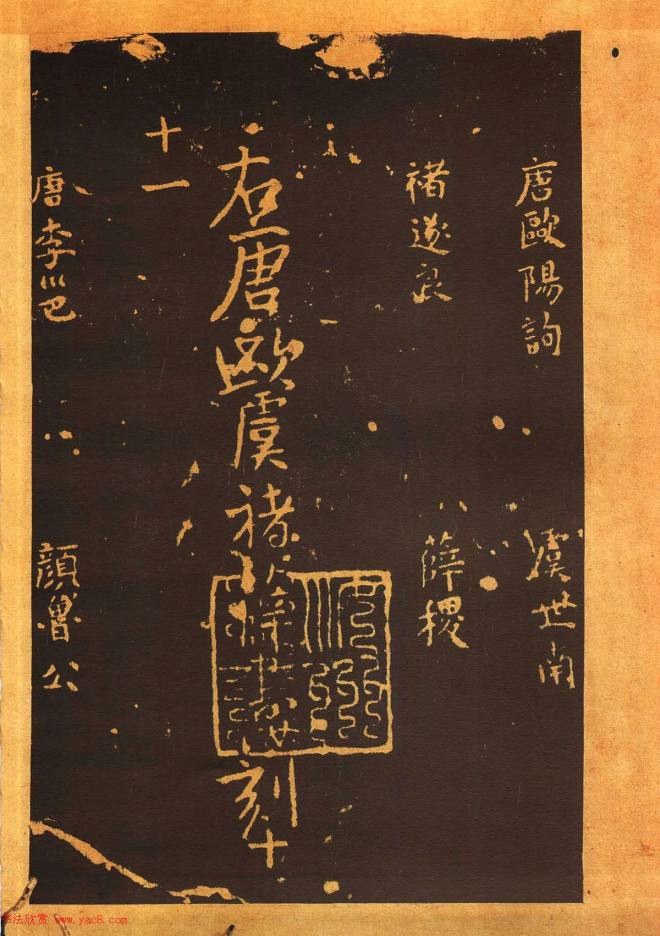 唐歐陽詢 虞世南
褚遂良 薛稷
右唐歐虞褚薛書世刻十
十一
唐李邕 顏魯公
书法欣赏 www.yac8.com